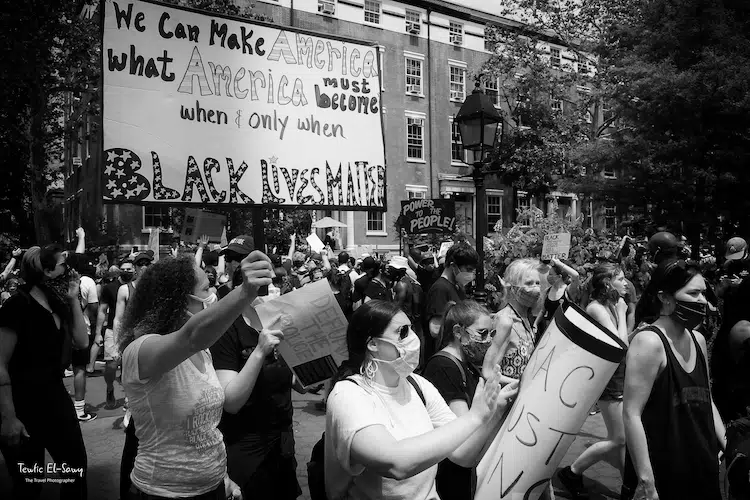 We Can Make America
what America must
become
when & only when
BLACK LIVES MATTER
POWER
TO THE
PEOPLE!
DEFUND
THE
POLICE
AC
UST
NO
Tewfic El-Sawy
The Travel Photographer